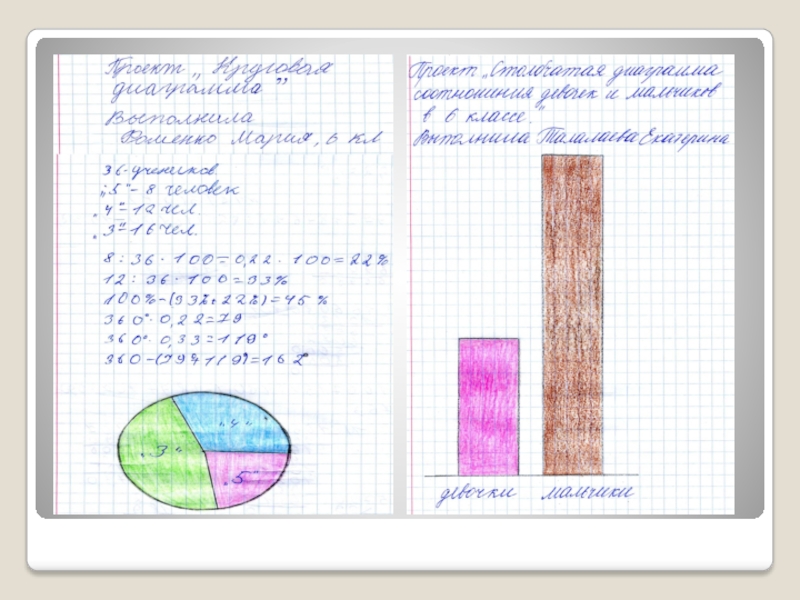 Проект „Круговая
диаграмма”
Выполнила
Фоменко Мария, 6 кл
36-учеников
„5“- 8 человек
„4“- 12 чел.
„3“- 16 чел.
8 : 36 · 100 = 0,22 · 100 = 22 %
12 : 36 · 100 = 33%
100%-(33%+22%)=45 %
360°· 0,22=79
360°· 0,33=119°
360-(79°+119°)=162°
„4“
„3“
„5“
Проект „Столбчатая диаграмма
соотношения девочек и мальчиков
в 6 классе.“
Выполнила Талалаева Екатерина
девочки мальчики